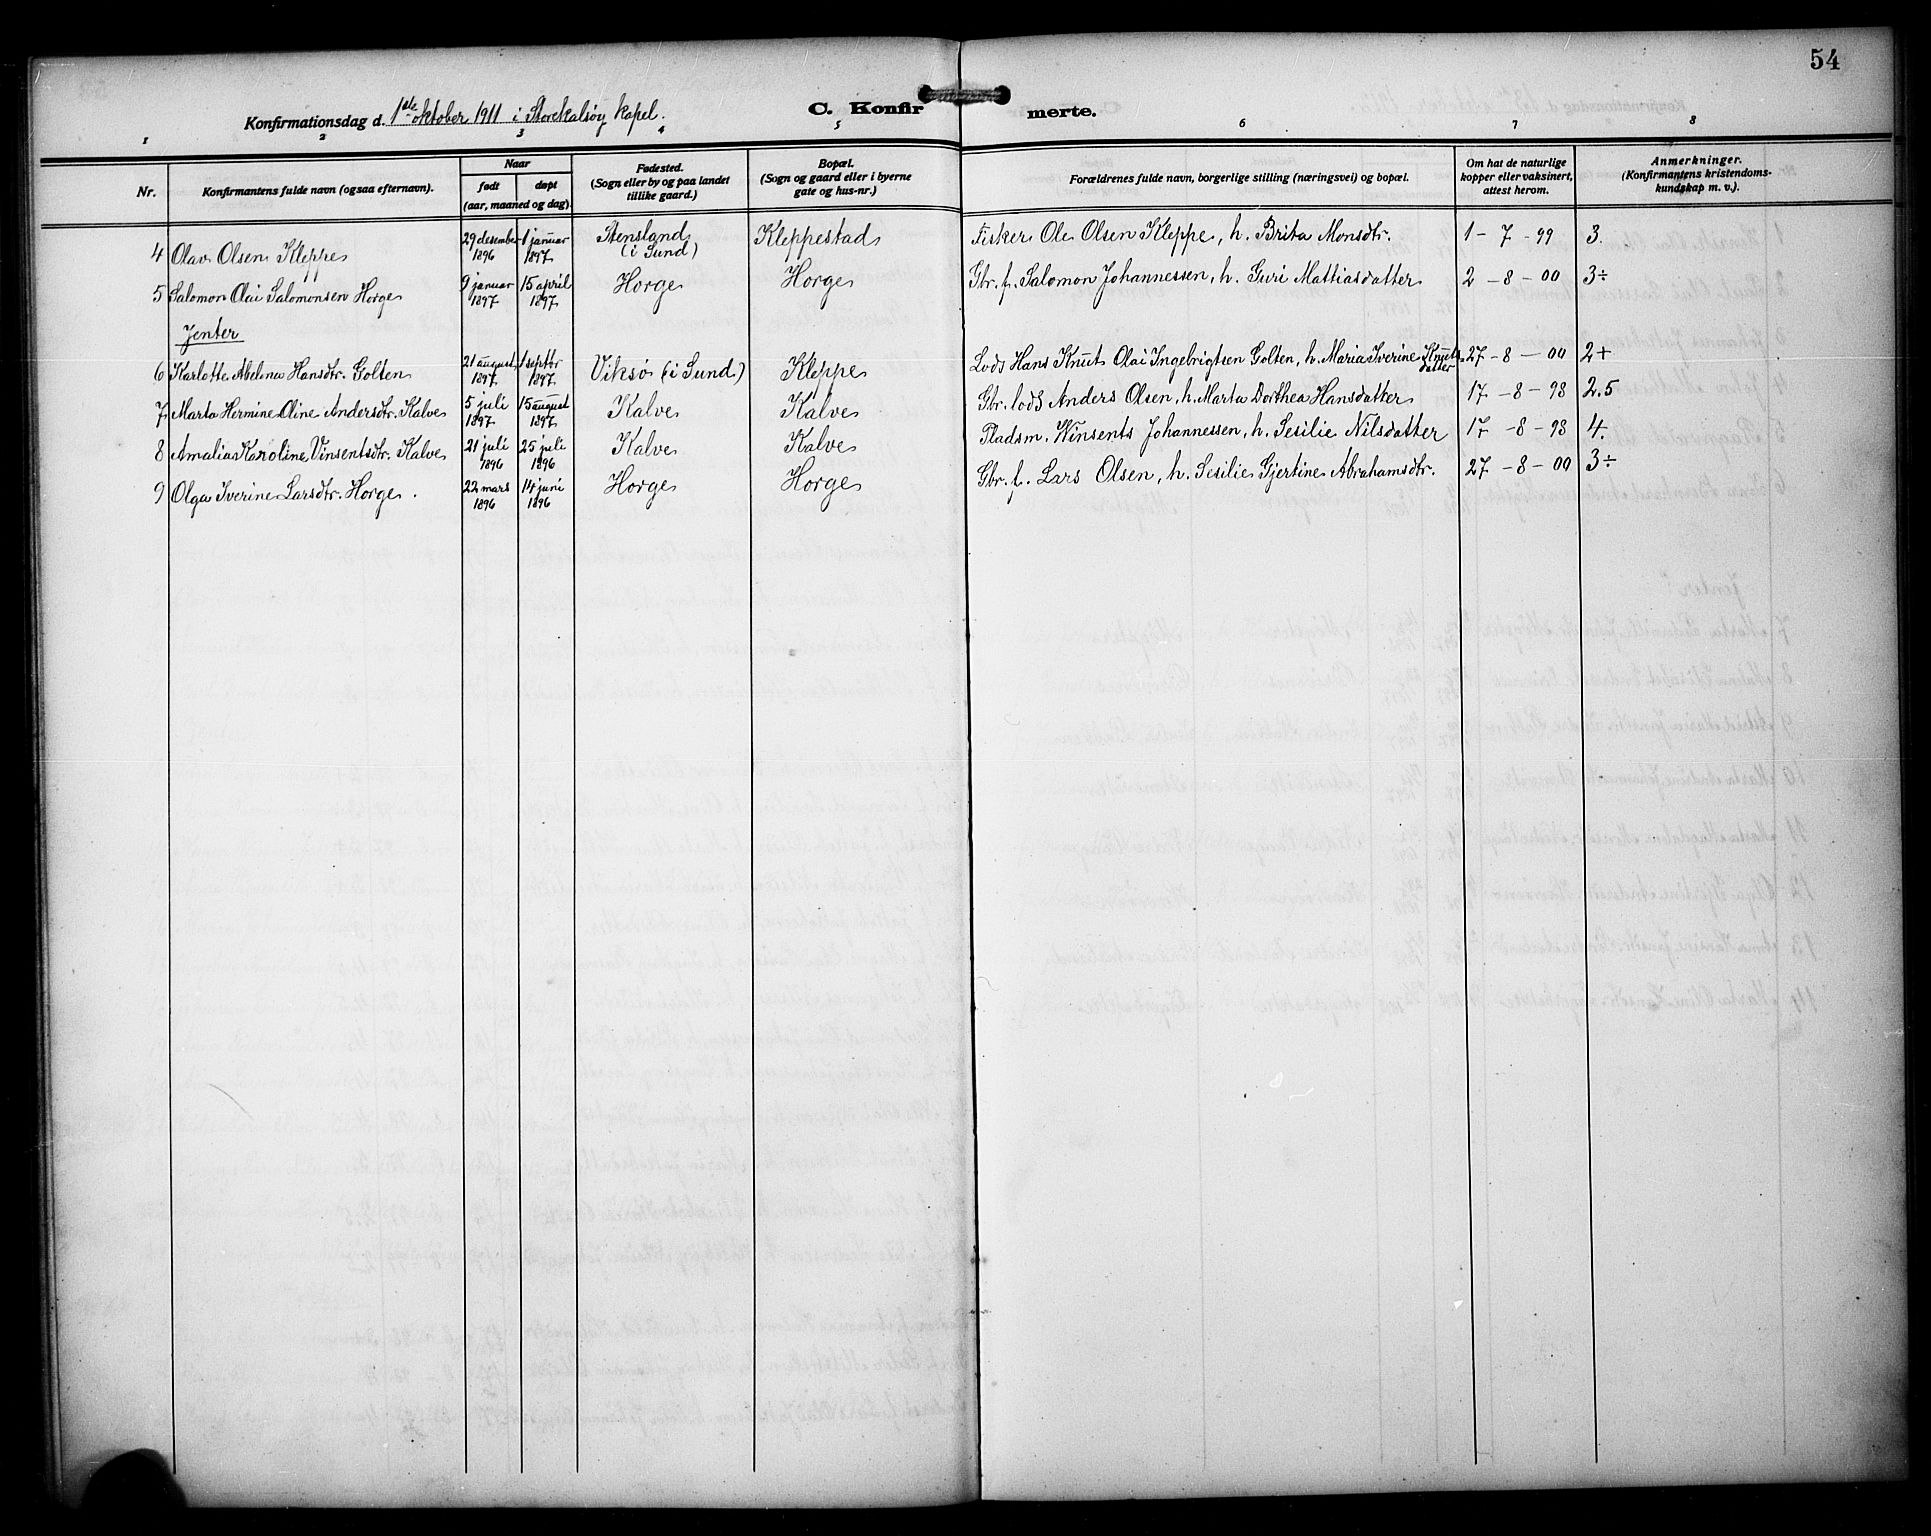 54
Konfirmationsdag d. 1ste oktober 1911 i Storekalsøy kapel.
C. Konfirmerte.
1 2 3 4 5 6 7 8
Nr.
Konfirmantens fulde navn (ogsaa efternavn).
Naar
født døpt
(aar, maaned og dag).
Fødested.
(Sogn eller by og paa landet
tillike gaard.)
Bopæl.
(Sogn og gaard eller i byerne
gate og hus-nr.)
Forældrenes fulde navn, borgerlige stilling (næringsvei) og bopæl.
Om hat de naturlige
kopper eller vaksinert,
attest herom.
Anmerkninger.
(Konfirmantens kristendoms-
kundskap m. v.).
4 Olav Olsen Kleppe 29 desember 1896 1 januar 1897 Stensland (i Sund) Kleppestad Fisker Ole Olsen Kleppe, h. Brita Monsdtr. 1 - 7 - 99 3.
5 Salomon Olai Salomonsen Horge 9 januar 1897 15 april 1897 Horge Horge Gbr. f. Salomon Johannessen, h. Guri Mattiasdatter 2 - 8 - 00 3÷
Jenter
6 Karlotte Abelena Hansdtr. Golten 21 august 1897 1 septbr 1897 Viksø (i Sund) Kleppe Lods Hans Knut Olai Ingebrigtsen Golten, h. Maria Iverine Knutsdatter 27 - 8 - 00 2+
7 Marta Hermine Oline Andersdtr. Kalve 5 juli 1897 15 august 1897 Kalve Kalve Gbr. lods Anders Olsen, h. Marta Dorthea Hansdatter 17 - 8 - 98 2.5
8 Amalia Karoline Vinsentsdtr. Kalve 21 juli 1896 25 juli 1896 Kalve Kalve Pladsm. Winsents Johannessen, h. Sesilie Nilsdatter 17 - 8 - 98 4.
9 Olga Iverine Larsdtr. Horge. 22 mars 1896 14 juni 1896 Horge Horge Gbr. f. Lars Olsen, h. Sesilie Gjertine Abrahamsdtr. 27 - 8 - 00 3÷